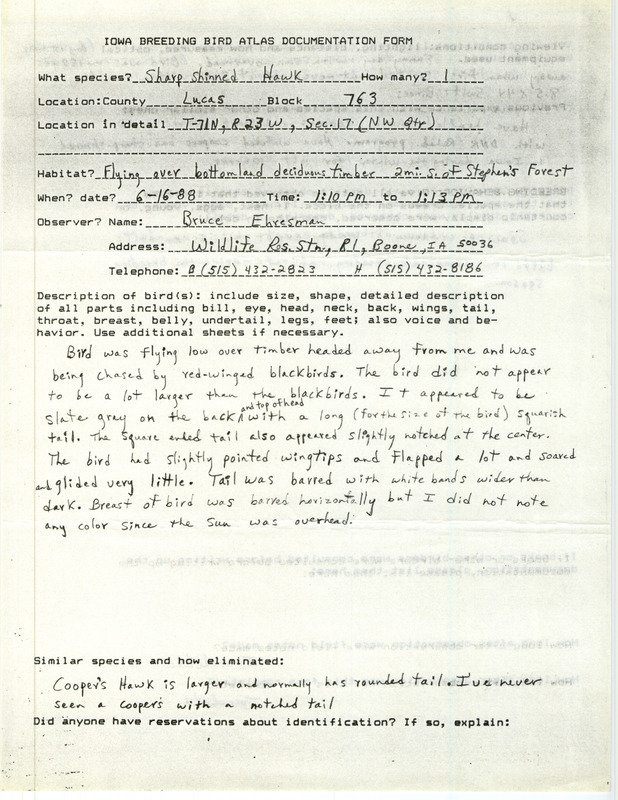 IOWA BREEDING BIRD ATLAS DOCUMENTATION FORM
What species? Sharp shinned Hawk How many? 1
Location: County Lucas Block 763
Location in detail T-71N, R23W, Sec. 17 (NW Qtr)
Habitat? Flying over bottomland deciduous timber 2mi. S. of Stephen's Forest
When? date? 6-16-88 Time: 1:10 PM to 1:13 PM
Observer? Name: Bruce Ehresman
Address: Wildlife Res. Stn., R1, Boone, IA 50036
Telephone: B (515) 432-2823 H (515) 432-8186
Description of bird(s): include size, shape, detailed description
of all parts including bill, eye, head, neck, back, wings, tail,
throat, breast, belly, undertail, legs, feet; also voice and be-
havior. Use additional sheets if necessary.
Bird was flying low over timber headed away from me and was
being chased by red-winged blackbirds. The bird did not appear
to be a lot larger than the blackbirds. It appeared to be
slate gray on the back and top of head with a long (for the size of the bird) squarish
tail. The square ended tail also appeared slightly notched at the center.
The bird had slightly pointed wingtips and flapped a lot and soared
and glided very little. Tail was barred with white bands wider than
dark. Breast of bird was barred horizontally but I did not note
any color since the sun was overhead.
Similar species and how eliminated:
Cooper's Hawk is larger and normally has rounded tail. I've never
seen a cooper's with a notched tail
Did anyone have reservations about identification? If so, explain: